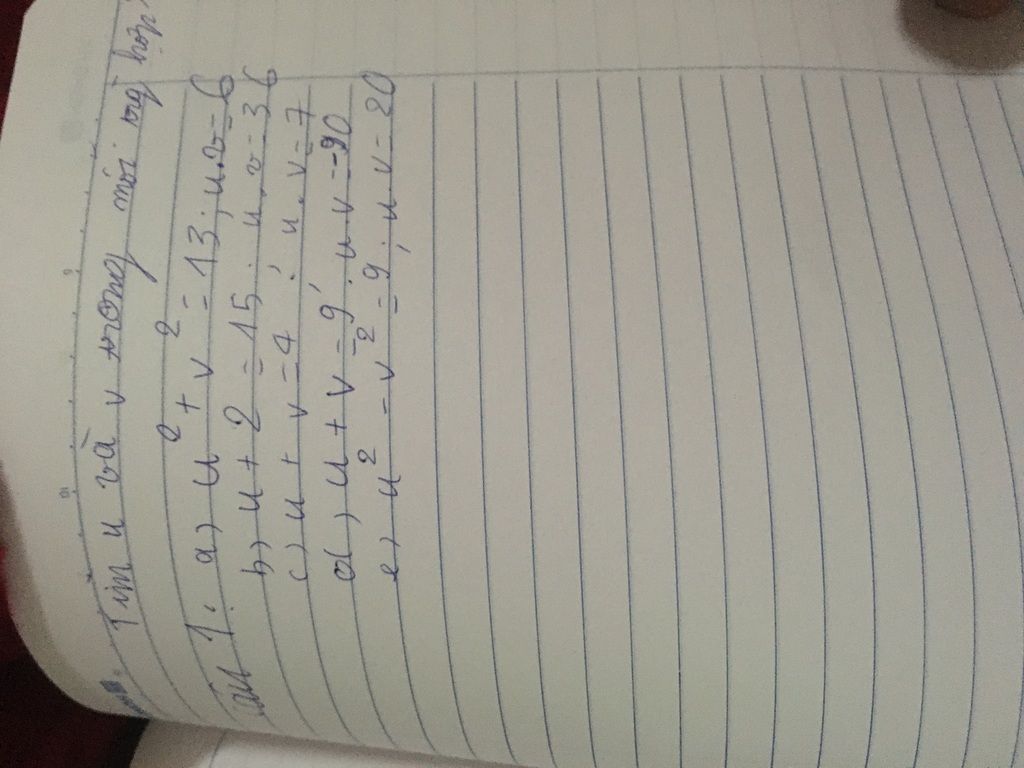 Tìm u và v trong mỗi trg hợp
Câu 1: a) u² + v² = 13; u.v = 6
b) u + 2 = 15; u.v = 36
c) u + v = 4; u.v = 7
d) u + v = 9; u v = 90
e) u² - v² = 9; u.v = 20